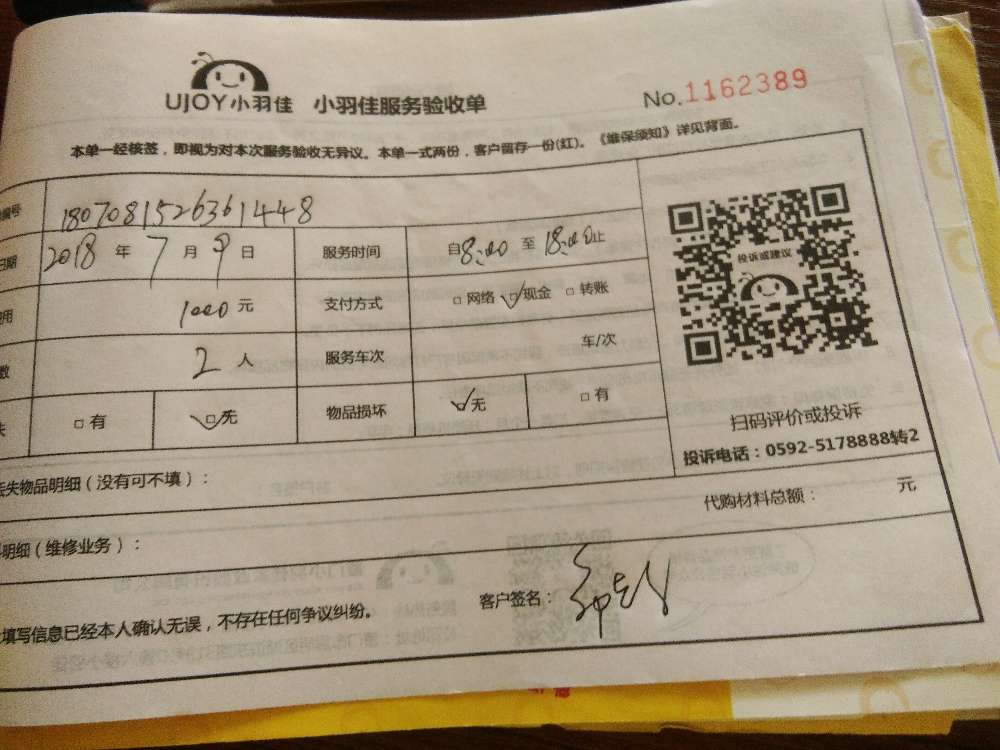 UJOY小羽佳 小羽佳服务验收单 No.1162389
本单一经核签，即视为对本次服务验收无异议。本单一式两份，客户留存一份(红)。《维保须知》详见背面。
编号 1807081526361448
日期 2018 年 7 月 9 日 服务时间 自8:00 至 18:00止
用 1000 元 支付方式 □网络 □现金 □转账
数 2 人 服务车次 车/次
失 □有 □无 物品损坏 □无 □有
投诉或建议
扫码评价或投诉
投诉电话：0592-5178888转2
丢失物品明细（没有可不填）：
代购材料总额： 元
明细（维修业务）：
客户签名：
填写信息已经本人确认无误，不存在任何争议纠纷。